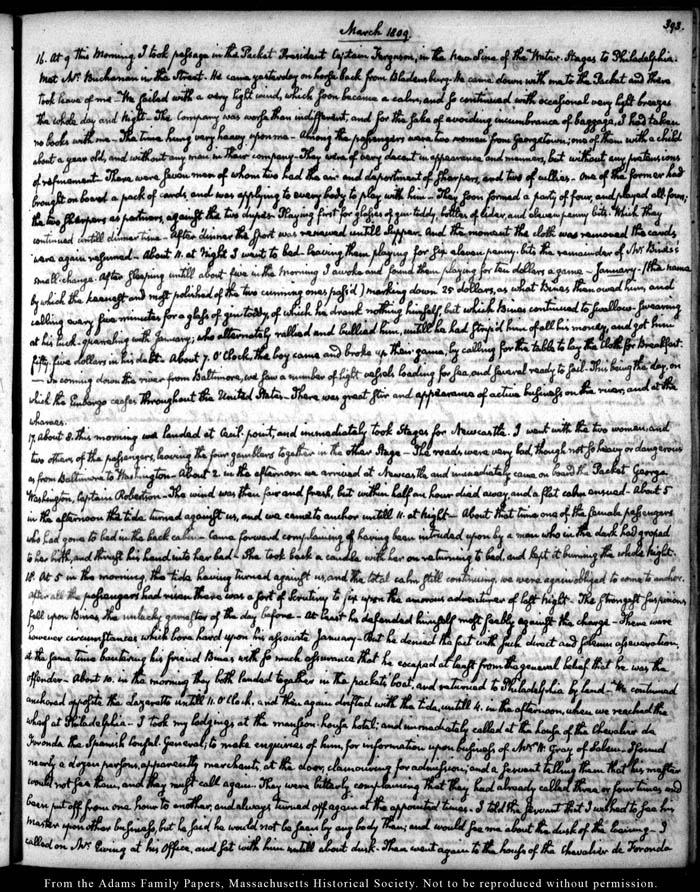 March 1809.
393.
16. At 9 this Morning I took passage in the Packet President Captain Ferguson, in the New Line of the Water-Stages to Philadelphia.
Met Mr. Buchanan in the Street. He came yesterday on horse back from Bladensburg. He came down with me to the Packet and there
took leave of me. We sailed with a very light wind, which soon became a calm, and so continued with occasional very light breezes
the whole day and Night. The Company was worse than indifferent, and for the sake of avoiding incumbrance of baggage, I had taken
no books with me. The time hung very heavy upon me. Among the passengers were two women from Georgetown; one of them with a child
about a year old, and without any man in their company. They were of very decent in appearance, and manners, but without any pretensions
of refinement. There were seven men of whom two had the air and deportment of sharpers, and two of cullies. One of the former had
brought on board a pack of cards, and was applying to every body to play with him. They soon formed a party of four, and played all-fours;
the two sharpers as partners, against the two dupes. Playing first for glasses of gin-toddy, bottles of cider, and eleven penny bits. Which they
continued untill dinner time. After dinner the sport was renewed untill supper. And the moment the cloth was removed the cards
were again resumed. About 11. at Night I went to bed leaving them playing for six eleven penny-bits the remainder of Mr. Binns's
small-change. After sleeping untill about five in the Morning I awoke and found them playing for ten dollars a game. January (the name
by which the keenest and most polished of the two cunning ones pass'd) marking down 25 dollars, as what Binns then owed him, and
calling every five minutes for a glass of gin toddy, of which he drank nothing himself, but which Binns continued to swallow. Swearing
at his luck. quarreling with January; who alternately rallied and bullied him, untill he had stripp'd him of all his money, and got him
fifty five dollars in his debt. About 7. O'Clock the boy came and broke up their game, by calling for the table to lay the cloth for Breakfast.
— In coming down the river from Baltimore, we saw a number of light vessels loading for sea, and several ready to sail. This being the day, on
which the Embargo ceases throughout the United States. There was great stir and appearance of active business on the river, and at the
wharves.
17. About 8. this morning we landed at Cecil point, and immediately took Stages for Newcastle. I went with the two women, and
two others of the passengers, leaving the four gamblers together in the other Stage. The roads were very bad, though not so heavy or dangerous
as from Baltimore to Washington. About 2. in the afternoon we arrived at Newcastle and immediately came on board the Packet George
Washington, Captain Robertson. The wind was then fair and fresh, but within half an hour died away, and a flat calm ensued. About 5
in the afternoon the tide turned against us, and we came to anchor untill 11. at Night. About that time one of the female passengers
who had gone to bed in the back cabin. Came forward complaining of having been intruded upon by a man who in the dark had groped
to her birth, and thrust his hand into her bed. She took back a candle with her on returning to bed, and kept it burning the whole Night.
18. At 5 in the morning, the tide having turned against us, and the total calm still continuing, we were again obliged to come to anchor.
after all the passengers had risen there was a sort of scrutiny to fix upon the amorous adventurer of last Night. The strongest suspicions
fell upon Binns the unlucky gamester of the day before. At least he defended himself most feebly against the charge. There were
however circumstances which bore hard upon his associate January. But he denied the fact with such direct and solemn asseveration,
at the same time bantering his friend Binns with so much assurance that he escaped at least from the general belief that he was the
offender. About 10. in the morning they both landed together in the packet's boat, and returned to Philadelphia by land. We continued
anchored opposite the Lazaretto untill 11. O'Clock, and then again drifted with the tide, untill 4. in the afternoon, when we reached the
wharf at Philadelphia. I took my lodgings at the mansion-house hotel; and immediately called at the house of the Chevalier de
Foronda the Spanish Consul General; to make enquiries of him, for information upon business of Mr. W. Gray of Salem. I found
nearly a dozen persons, apparently merchants, at the door, clamouring for admission; and a servant telling them that his master
could not see them, and they must call again. They were bitterly complaining that they had already called three or four times and
been put off from one hour to another, and always turned off again at the appointed times. I told the servant that I wished to see his
master upon other business, but he said he would not be seen by any body then; and would see me about the dusk of the evening. I
called on Mr. Ewing at his Office, and sat with him untill about dusk. Then went again to the house of the Chevalier de Foronda
From the Adams Family Papers, Massachusetts Historical Society. Not to be reproduced without permission.